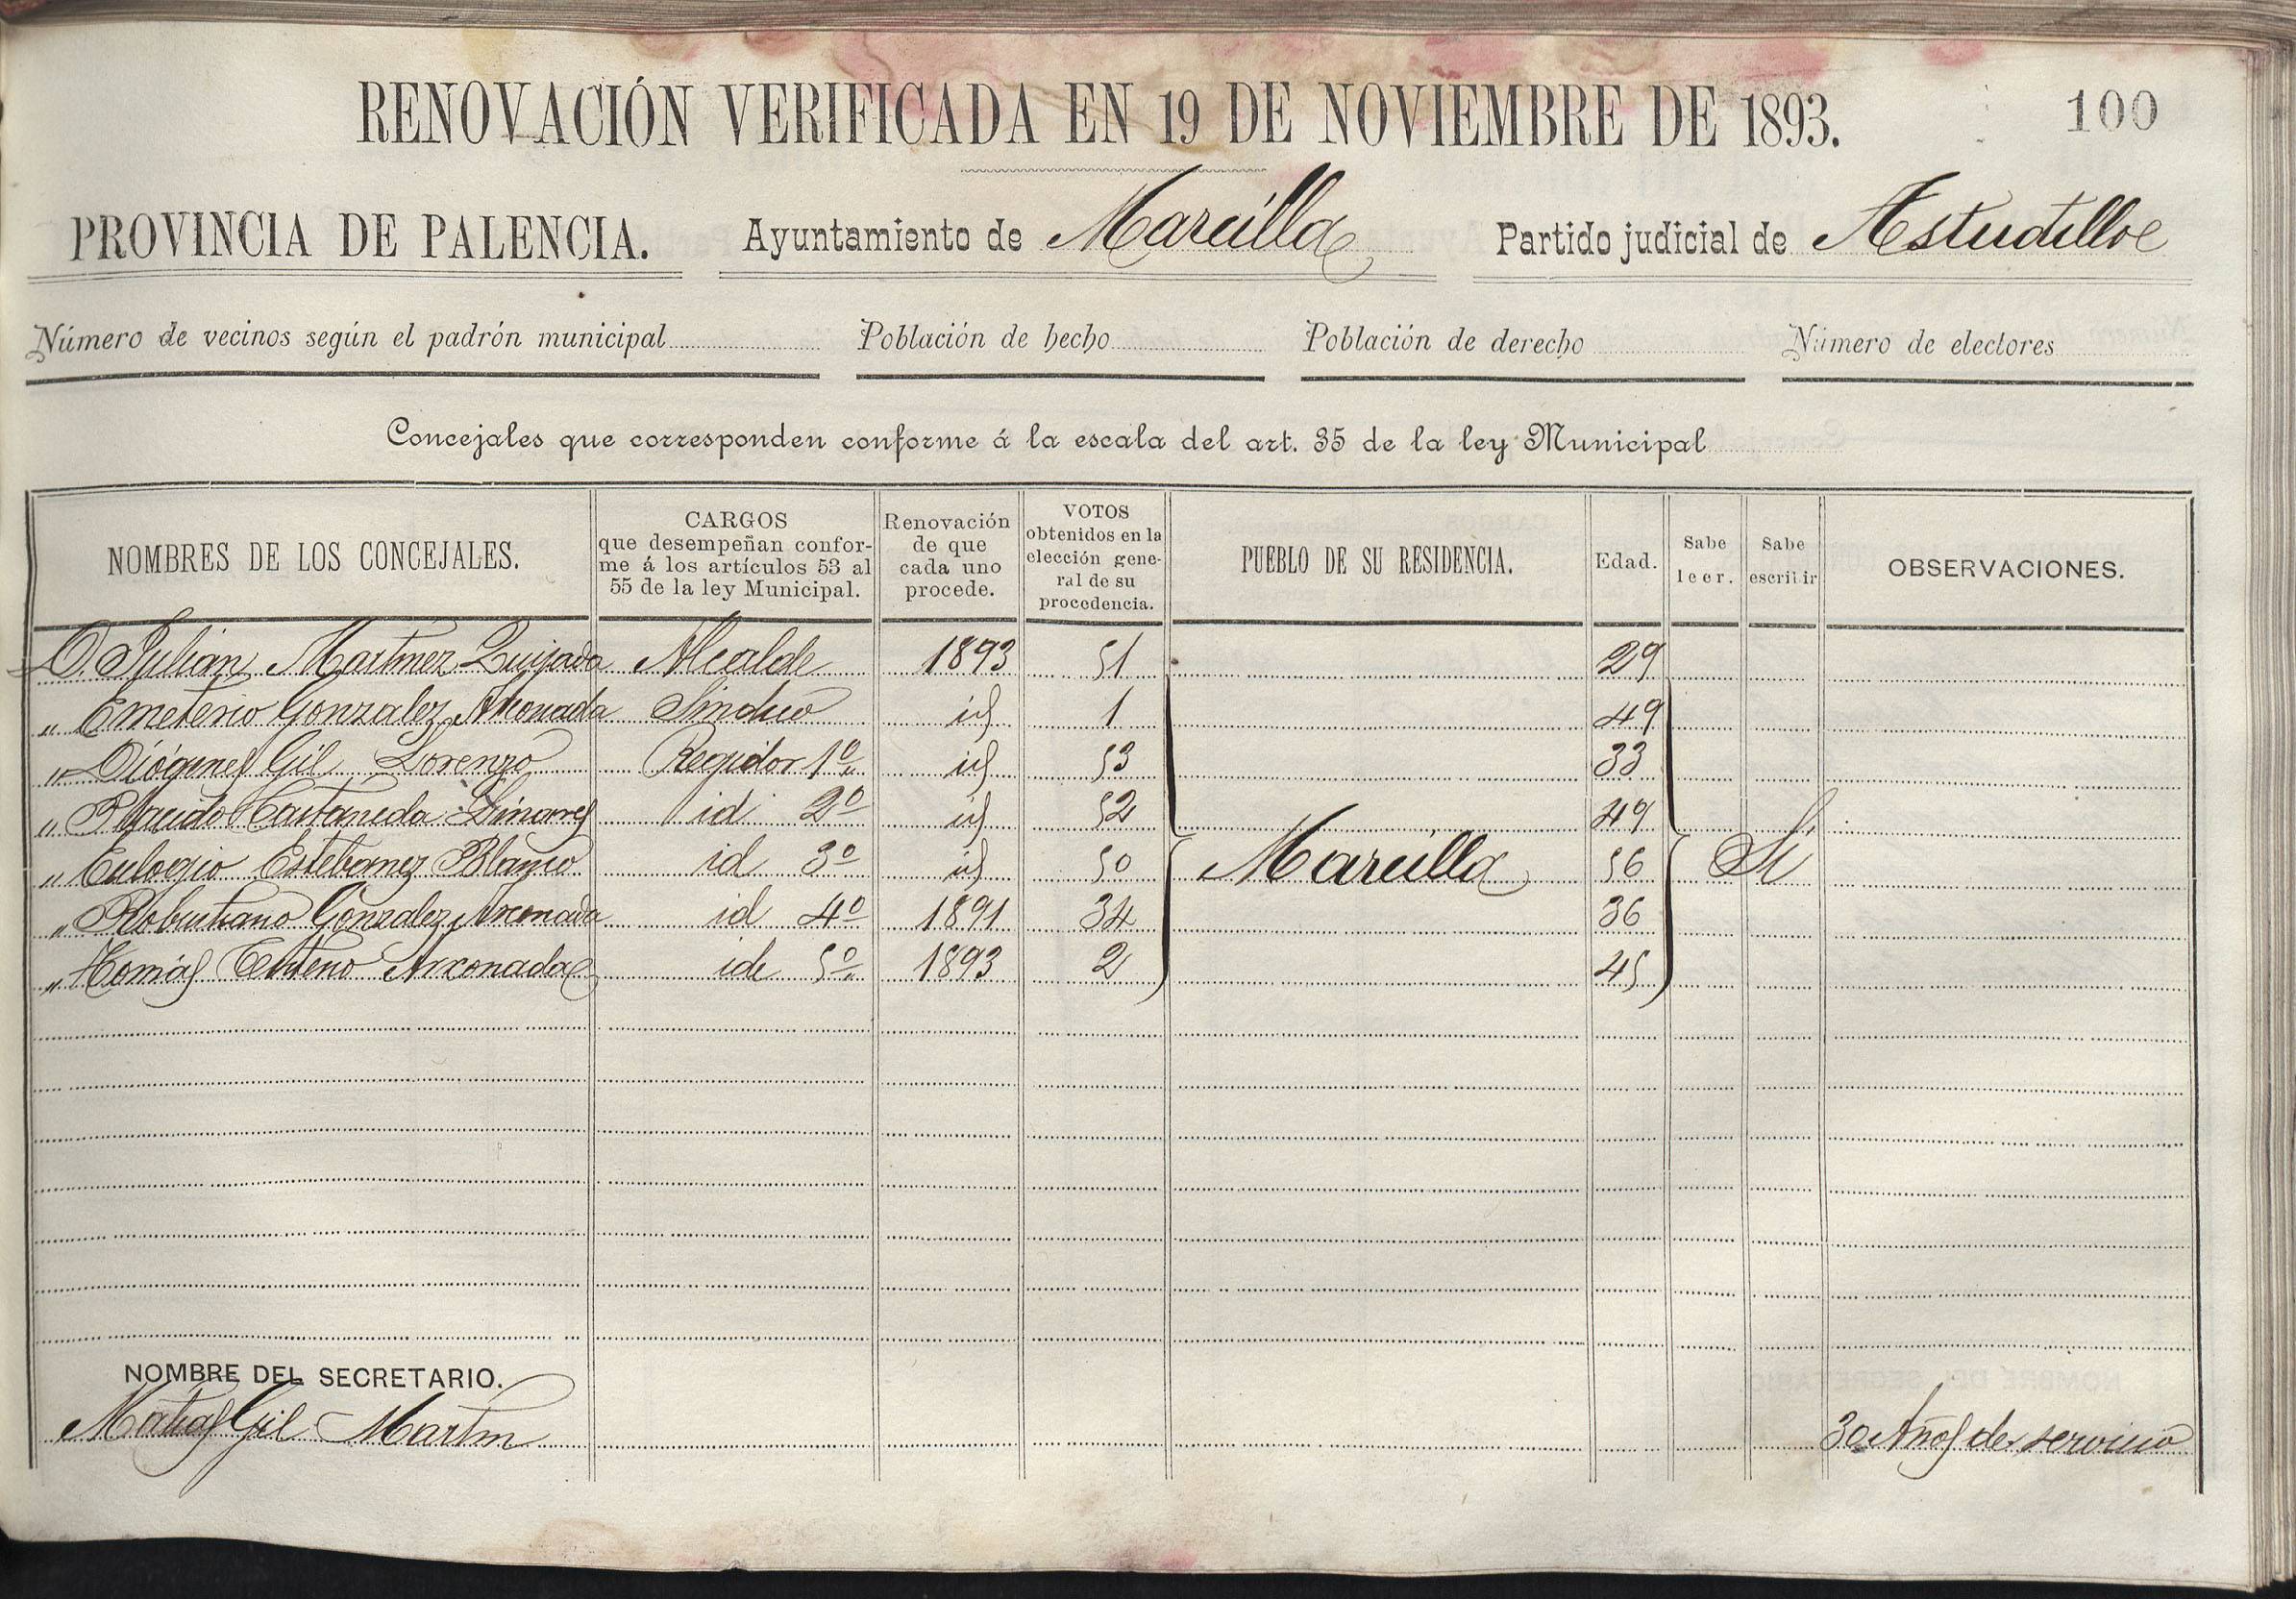 RENOVACIÓN VERIFICADA EN 19 DE NOVIEMBRE DE 1893. 100
PROVINCIA DE PALENCIA. Ayuntamiento de Marcilla Partido judicial de Astudillo
Número de vecinos según el padrón municipal Población de hecho Población de derecho Número de electores
Concejales que corresponden conforme á la escala del art. 35 de la ley Municipal
NOMBRES DE LOS CONCEJALES.
CARGOS
que desempeñan confor-
me á los artículos 53 al
55 de la ley Municipal.
Renovación
de que
cada uno
procede.
VOTOS
obtenidos en la
elección gene-
ral de su
procedencia.
PUEBLO DE SU RESIDENCIA.
Edad.
Sabe
leer.
Sabe
escribir
OBSERVACIONES.
D. Julian Martinez Quijada Alcalde 1893 51 29
" Emeterio Gonzalez Arconada Sindico id 1 49
" Diógenes Gil Lorenzo Regidor 1º id 53 33
" Placido Castañeda Linares id 2º id 52 49
" Eulogio Estebanez Blanco id 3º id 50 Marcilla 56 Si
" Robustiano Gonzalez Arconada id 4º 1891 34 36
" Tomás Arconada id 5º 1893 2 45
NOMBRE DEL SECRETARIO.
Matias Gil Martin 30 Años de servicio